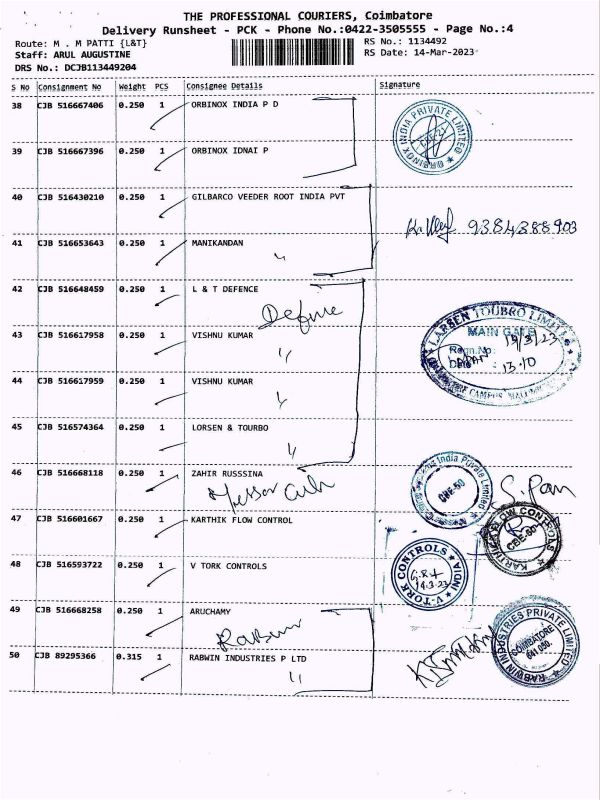 THE PROFESSIONAL COURIERS, Coimbatore
Delivery Runsheet - PCK - Phone No.:0422-3505555 - Page No.:4
Route: M . M PATTI {L&T}
RS No.: 1134492
Staff: ARUL AUGUSTINE
RS Date: 14-Mar-2023
DRS No.: DCJB113449204
S No Consignment No Weight PCS Consignee Details Signature
38 CJB 516667406 0.250 1 ORBINOX INDIA P D
ORBINOX INDIA PRIVATE LIMITED
39 CJB 516667396 0.250 1 ORBINOX IDNAI P
40 CJB 516430210 0.250 1 GILBARCO VEEDER ROOT INDIA PVT
9384288903
41 CJB 516653643 0.250 1 MANIKANDAN
42 CJB 516648459 0.250 1 L & T DEFENCE
Define
LARSEN TOUBRO LIMITED
MAIN GATE
Regn.No
13.10
43 CJB 516617958 0.250 1 VISHNU KUMAR
44 CJB 516617959 0.250 1 VISHNU KUMAR
45 CJB 516574364 0.250 1 LORSEN & TOURBO
46 CJB 516668118 0.250 1 ZAHIR RUSSSINA
India Private Limited
CBE-50
47 CJB 516601667 0.250 1 KARTHIK FLOW CONTROL
KARTHICK FLOW CONTROLS
48 CJB 516593722 0.250 1 V TORK CONTROLS
V-TORK CONTROLS INDIA
14.3.23
49 CJB 516668258 0.250 1 ARUCHAMY
Rabwin
RABWIN INDUSTRIES PRIVATE LIMITED
COIMBATORE
50 CJB 89295366 0.315 1 RABWIN INDUSTRIES P LTD